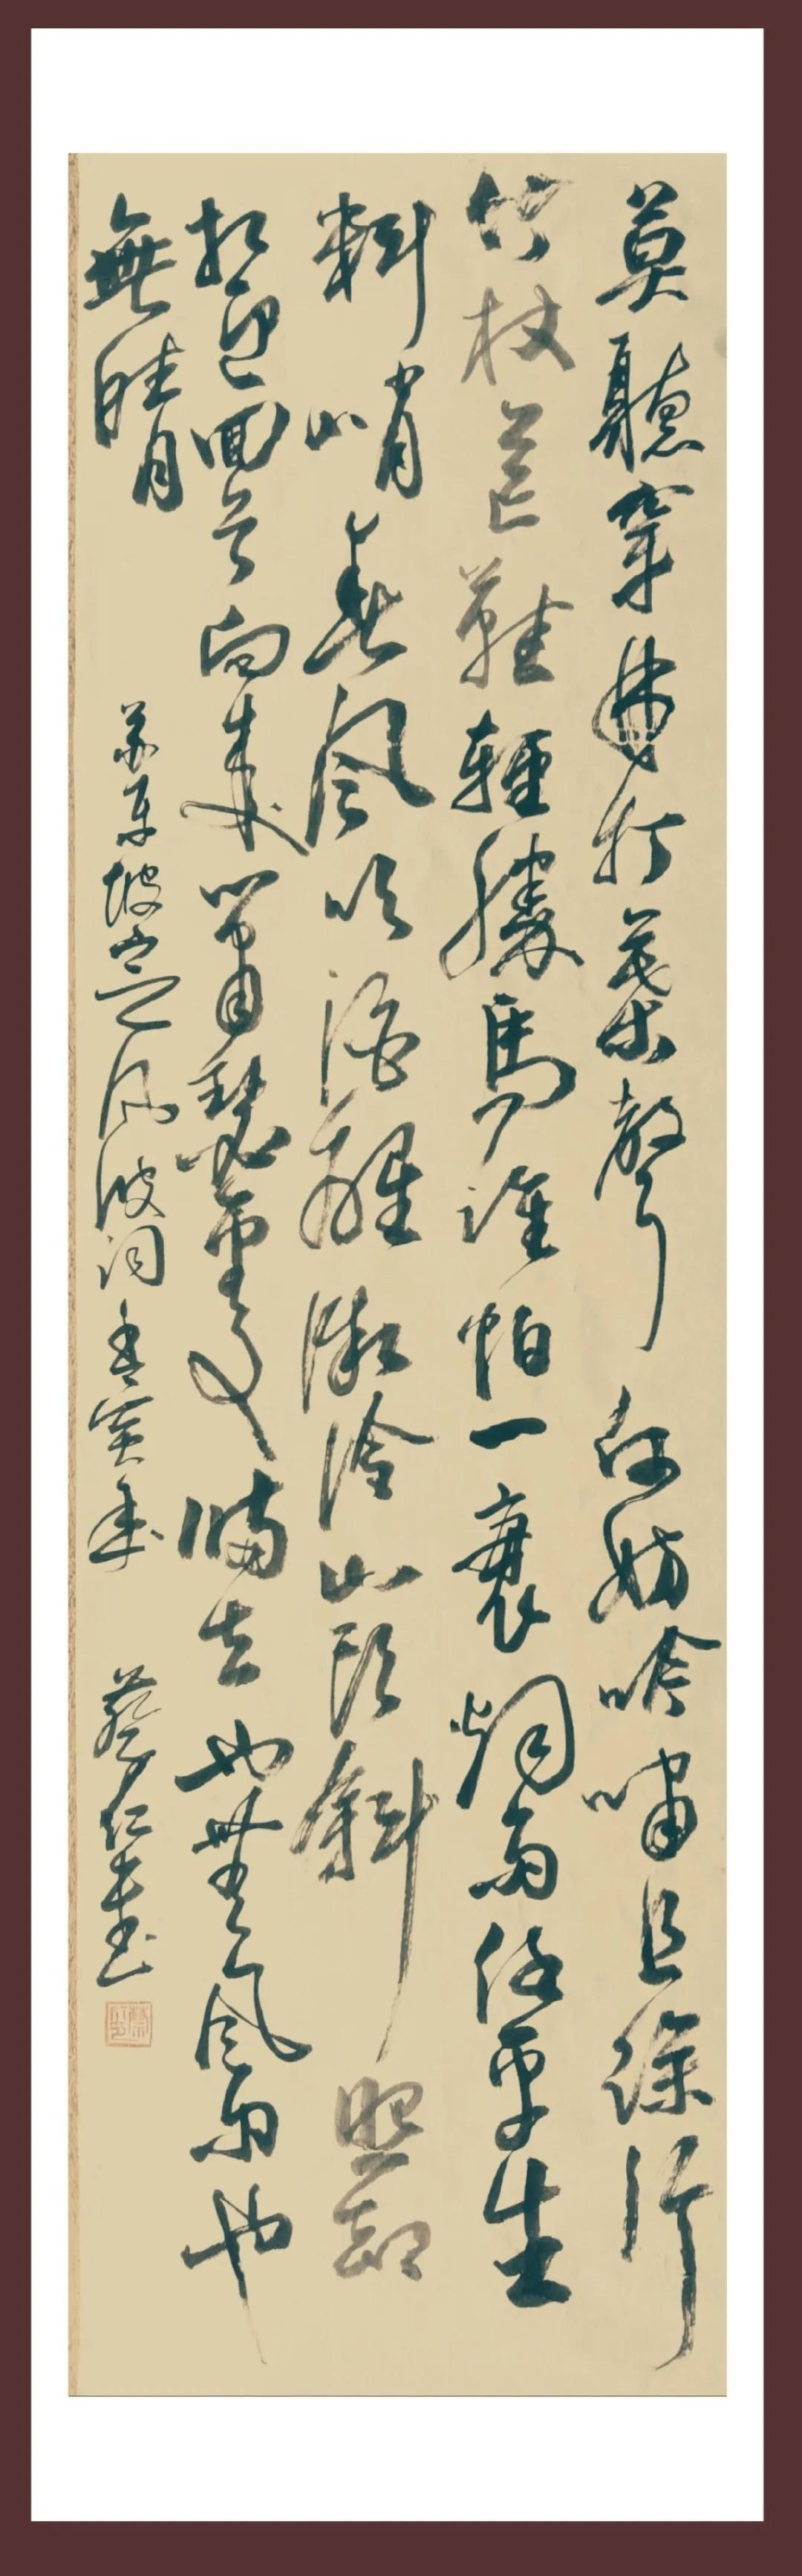 莫聽穿林打葉聲何妨吟嘯且徐行
竹杖芒鞋輕勝馬誰怕一蓑烟雨任平生
料峭春風吹酒醒微冷山頭斜照却
相迎回首向來蕭瑟處歸去也無風雨也
無晴
蘇東坡定風波詞 寅年 蔡仁書